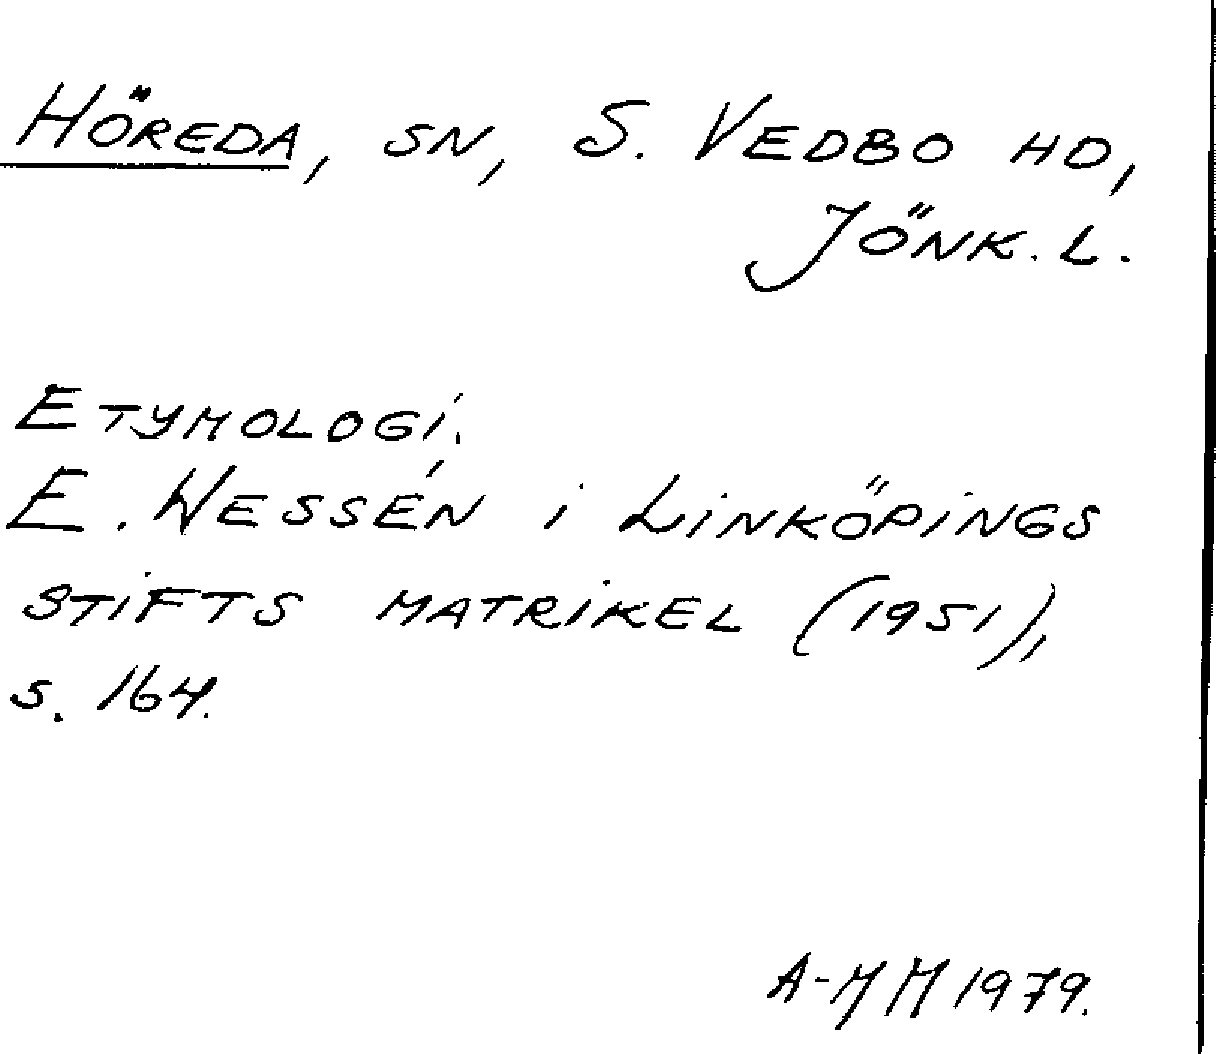 HÖREDA, SN, S. VEDBO HD,
JÖNK. L.
ETYMOLOGI.
E. WESSÉN i LINKÖPINGS
STIFTS MATRIKEL (1951),
S. 164.
A-MM 1979.